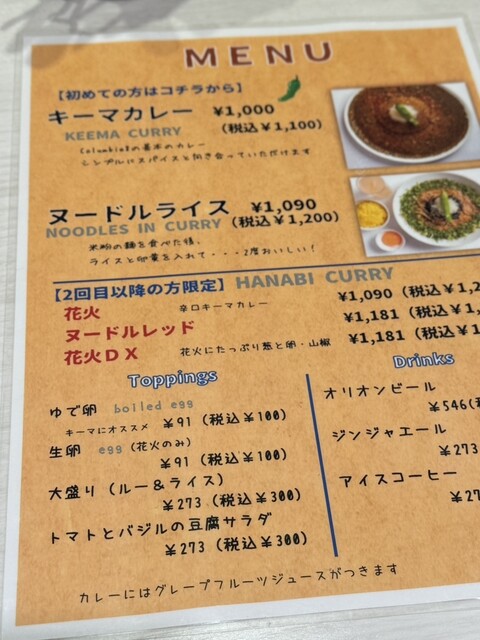 MENU
【初めての方はコチラから】
キーマカレー ¥1,000
KEEMA CURRY (税込¥1,100)
Columbia8の基本のカレー
シンプルにスパイスと向き合っていただけます
ヌードルライス ¥1,090
NOODLES IN CURRY (税込¥1,200)
米粉の麺を食べた後、
ライスと卵黄を入れて・・・2度おいしい！
【2回目以降の方限定】HANABI CURRY
花火 辛口キーマカレー ¥1,090 (税込¥1,2
ヌードルレッド ¥1,181 (税込¥1
花火DX 花火にたっぷり葱と卵・山椒 ¥1,181 (税込¥1
Toppings
ゆで卵 boiled egg
キーマにオススメ ¥91 (税込¥100)
生卵 egg (花火のみ)
¥91 (税込¥100)
大盛り (ルー＆ライス)
¥273 (税込¥300)
トマトとバジルの豆腐サラダ
¥273 (税込¥300)
Drinks
オリオンビール
¥546(税
ジンジャエール
¥273
アイスコーヒー
¥27
カレーにはグレープフルーツジュースがつきます